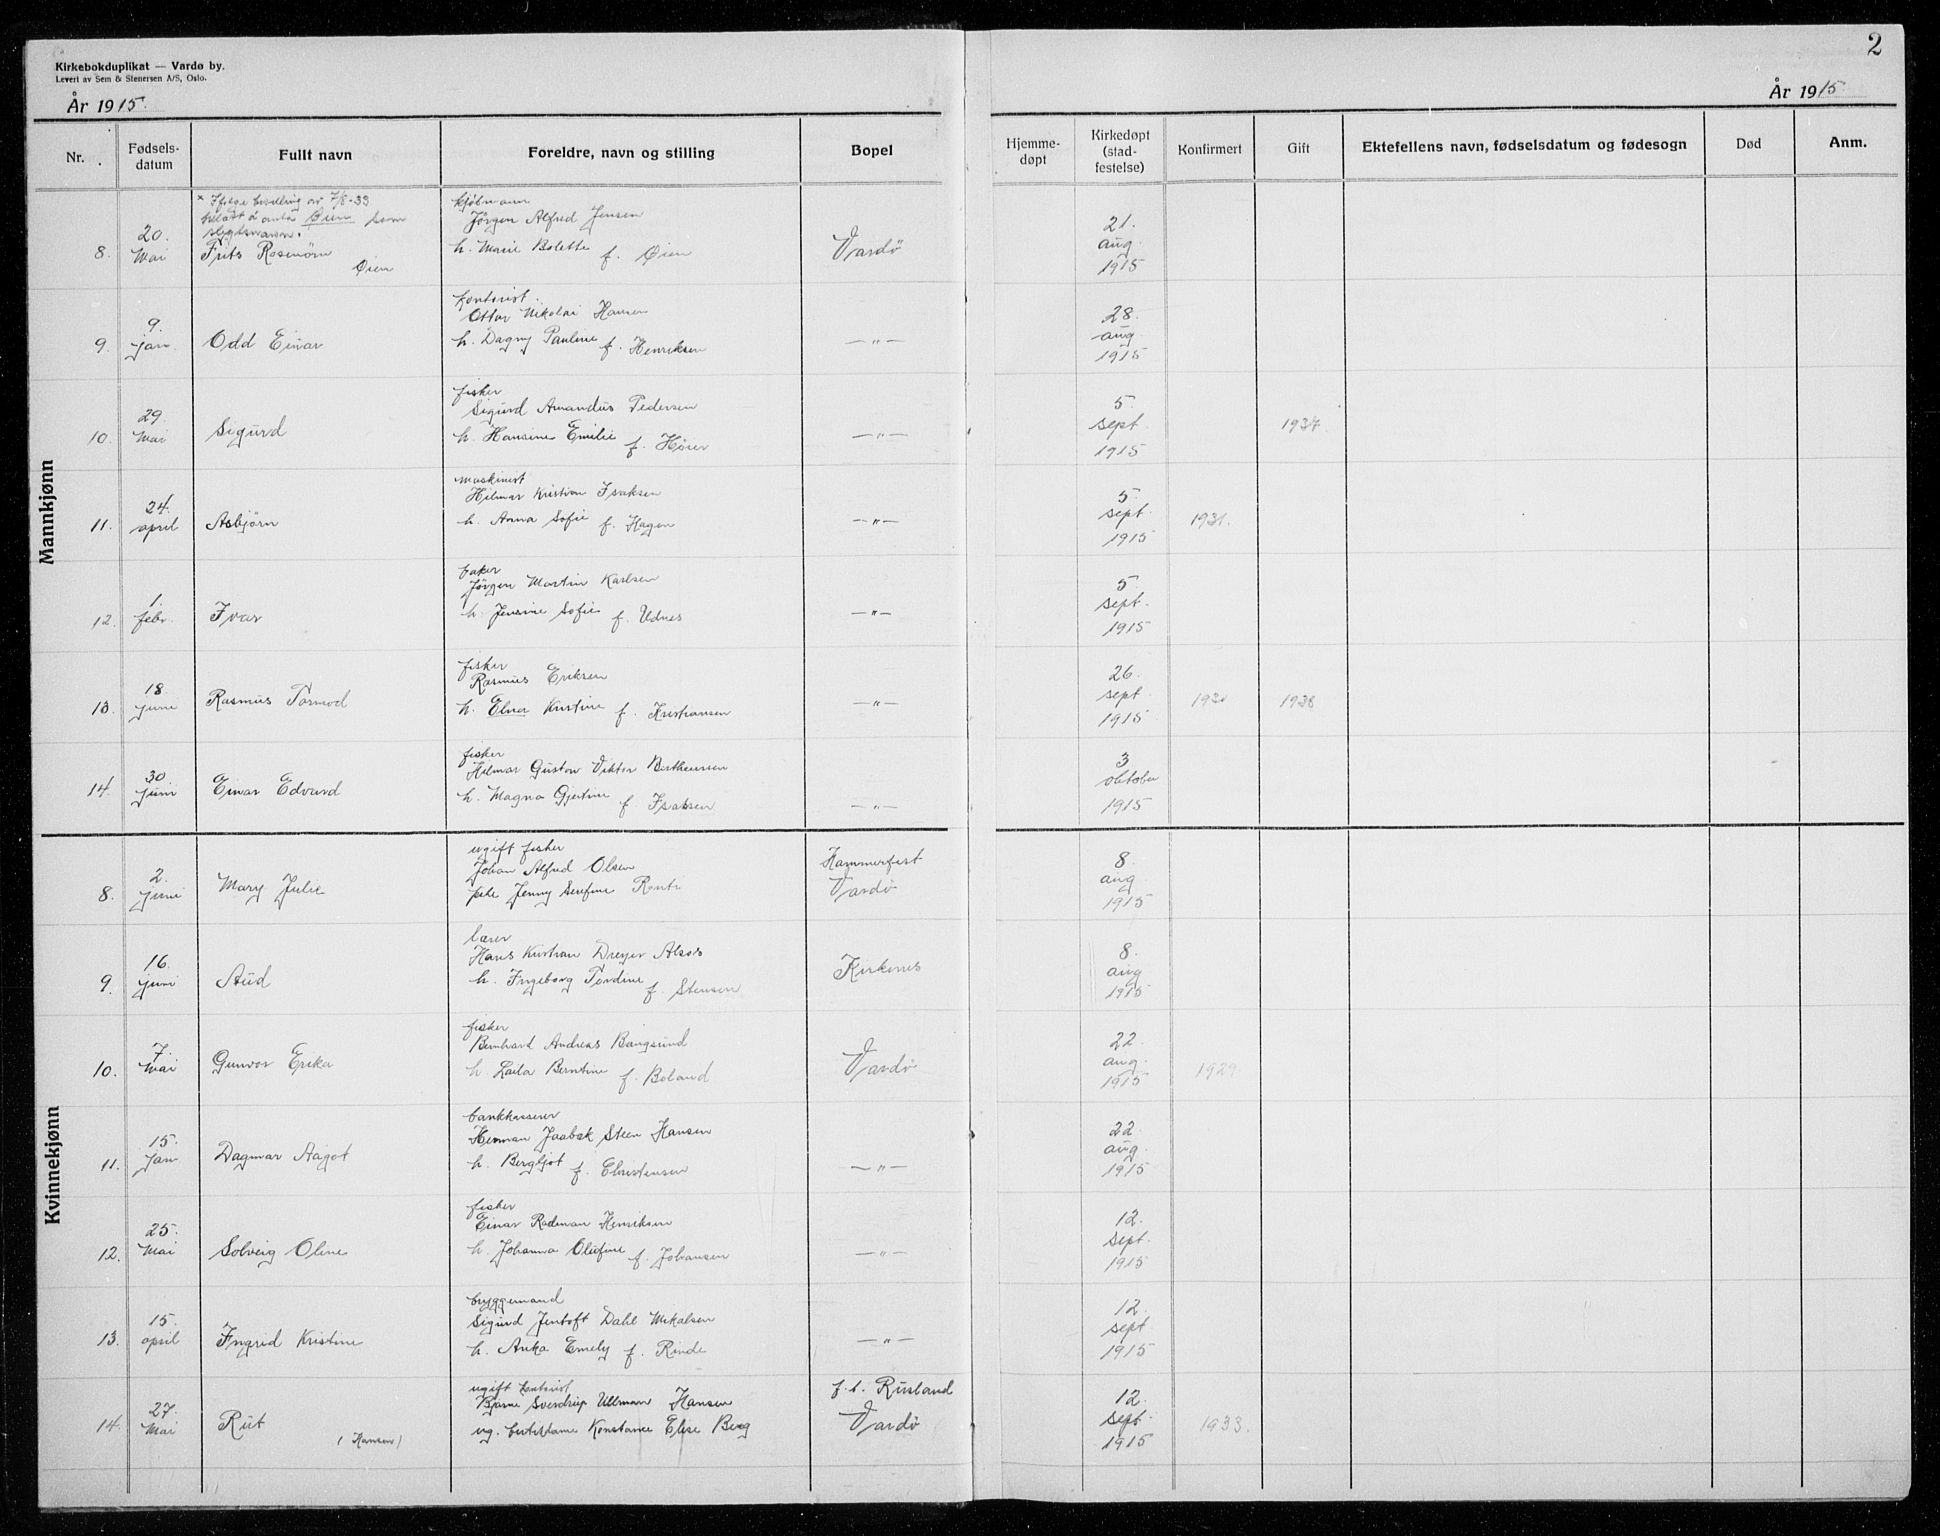 Kirkebokduplikat — Vardø by.
Levert av Sem & Stenersen A/S, Oslo.
År 1915.
2
År 1915.
Nr. Fødsels-datum Fullt navn Foreldre, navn og stilling Bopel Hjemme-døpt Kirkedøpt (stad-festelse) Konfirmert Gift Ektefellens navn, fødselsdatum og fødesogn Død Anm.
Mannkjønn
× Ifølge bevilling av 7/8-33
tillatt å anta Øien som
slegtsnavn.
kjøbmann
8. 20. Mai Frits Rosenörn Øien Jörgen Alfred Jensen
h. Marie Bolette f. Øien Vardö 21. aug. 1915
kontorist.
9. 9. jan. Odd Einar Ottar Nikolai Hansen
h. Dagny Pauline f. Henriksen —"— 28. aug. 1915
fisker
10. 29. Mai Sigurd Sigurd Amandus Pedersen
h. Hansine Emilie f. —"— 5. sept. 1915 1937.
maskinist
11. 24. april Asbjörn Hilmar Kristian Isaksen
h. Anna Sofie f. Hagen —"— 5. sept. 1915 1931.
baker
12. 1. febr. Ivar Jörgen Martin Karlsen
h. Jensine Sofie f. Udnes —"— 5. sept. 1915
fisker
13. 18. juni Rasmus Tormod Rasmus Eriksen
h. Elna Kristine f. Kristiansen —"— 26. sept. 1915 1930 1938
fisker
14. 30 juni Einar Edvard Hilmar Gustav Viktor Bertheussen
h. Magna Gjertine f. Isaksen —"— 3 oktober 1915
Kvinnekjønn
ugift fisker
8. 2. juni Mary Julie Johan Alfred Olsen Hammerfest
pike Jenny Serefine Vardö 8. aug. 1915
lærer
9. 16. juni Aud Hans Kristian Dreyer
h. Ingeborg Tordine f. Stensen Kirkenes 8. aug 1915
fisker
10. 7. Mai Gunvor Erika Bernhard Andreas Bangsund
h. Laila Berntine f. Boland Vardö 22. aug. 1915 1929.
bankkasserer
11. 15. jan Dagmar Aagot Herman Jaabæk Steen Hansen
h. Bergljot f. Christensen —"— 22. aug. 1915
fisker
12. 25. Mai Solveig Oline Einar Rodman Henriksen
h. Johanna Olufine f. Johansen —"— 12. sept. 1915
bryggemand
13. 15. april Ingrid Kristine Sigurd Jentoft Dahl Mikalsen
h. Anka Emely f. Rinde —"— 12. sept 1915
ugift kontorist
14. 27. Mai Rut (Hansen) Bjarne Sverdrup Ullman Hansen f.t. Rusland
ug. butikdame Konstanse Elise Berg Vardö 12. sept. 1915 1933.